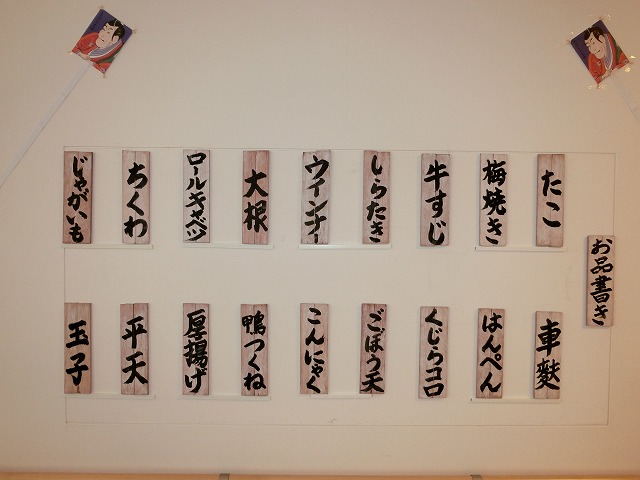 お品書き
たこ
梅焼き
牛すじ
しらたき
ウインナー
大根
ロールキャベツ
ちくわ
じゃがいも
車麩
はんぺん
くじらコロ
ごぼう天
こんにゃく
鴨つくね
厚揚げ
平天
玉子